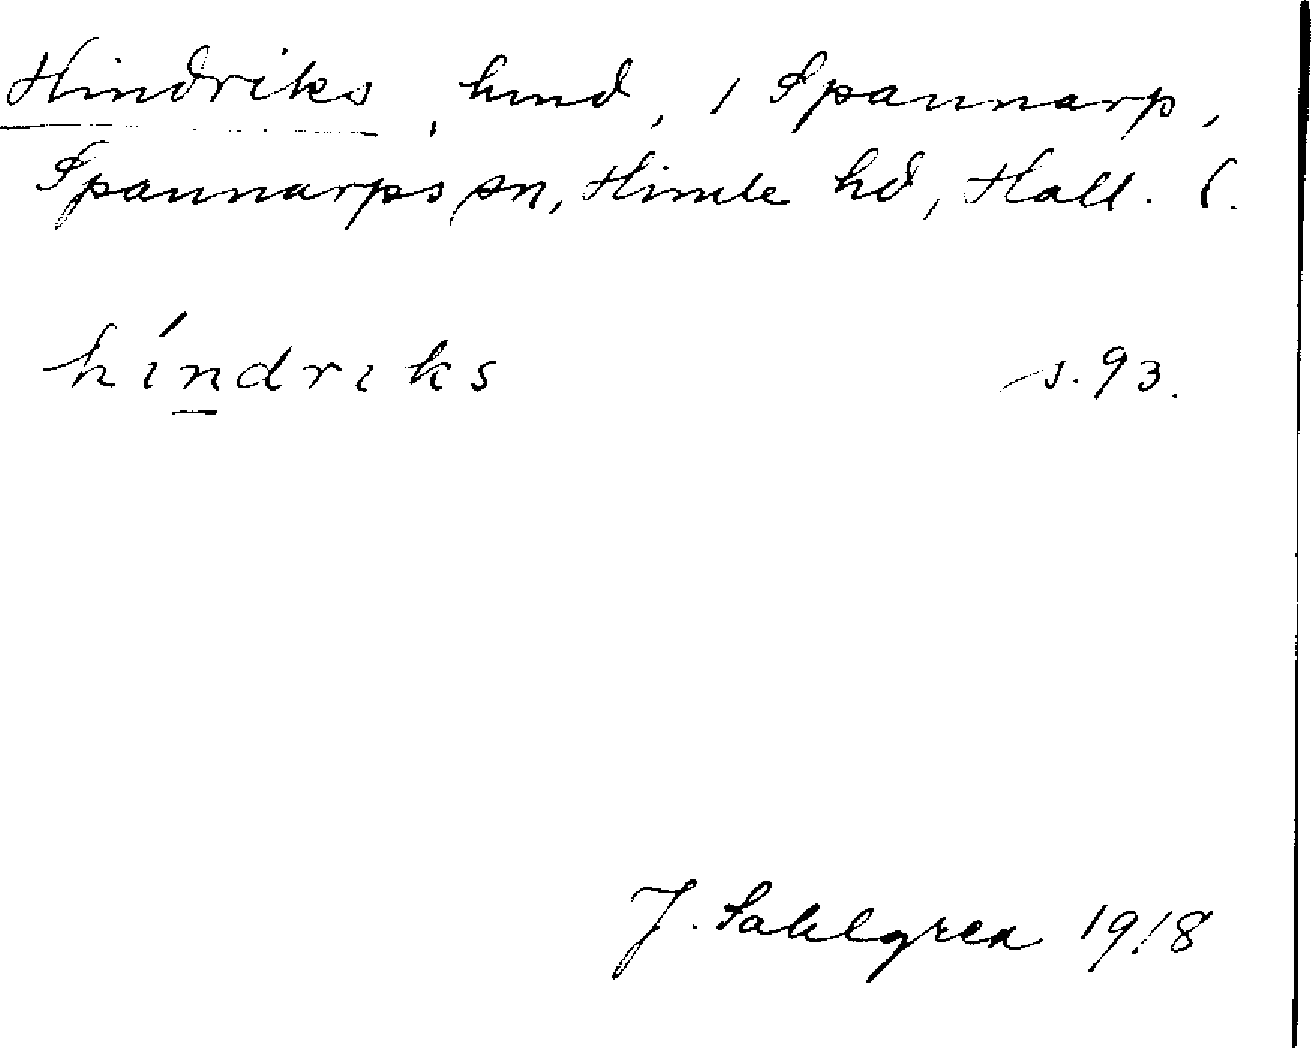 Hindriks, hmd, i Spannarp,
Spannarps sn, Himle hd, Hall. l.
híndriks s. 93.
J. Sahlgren 1918